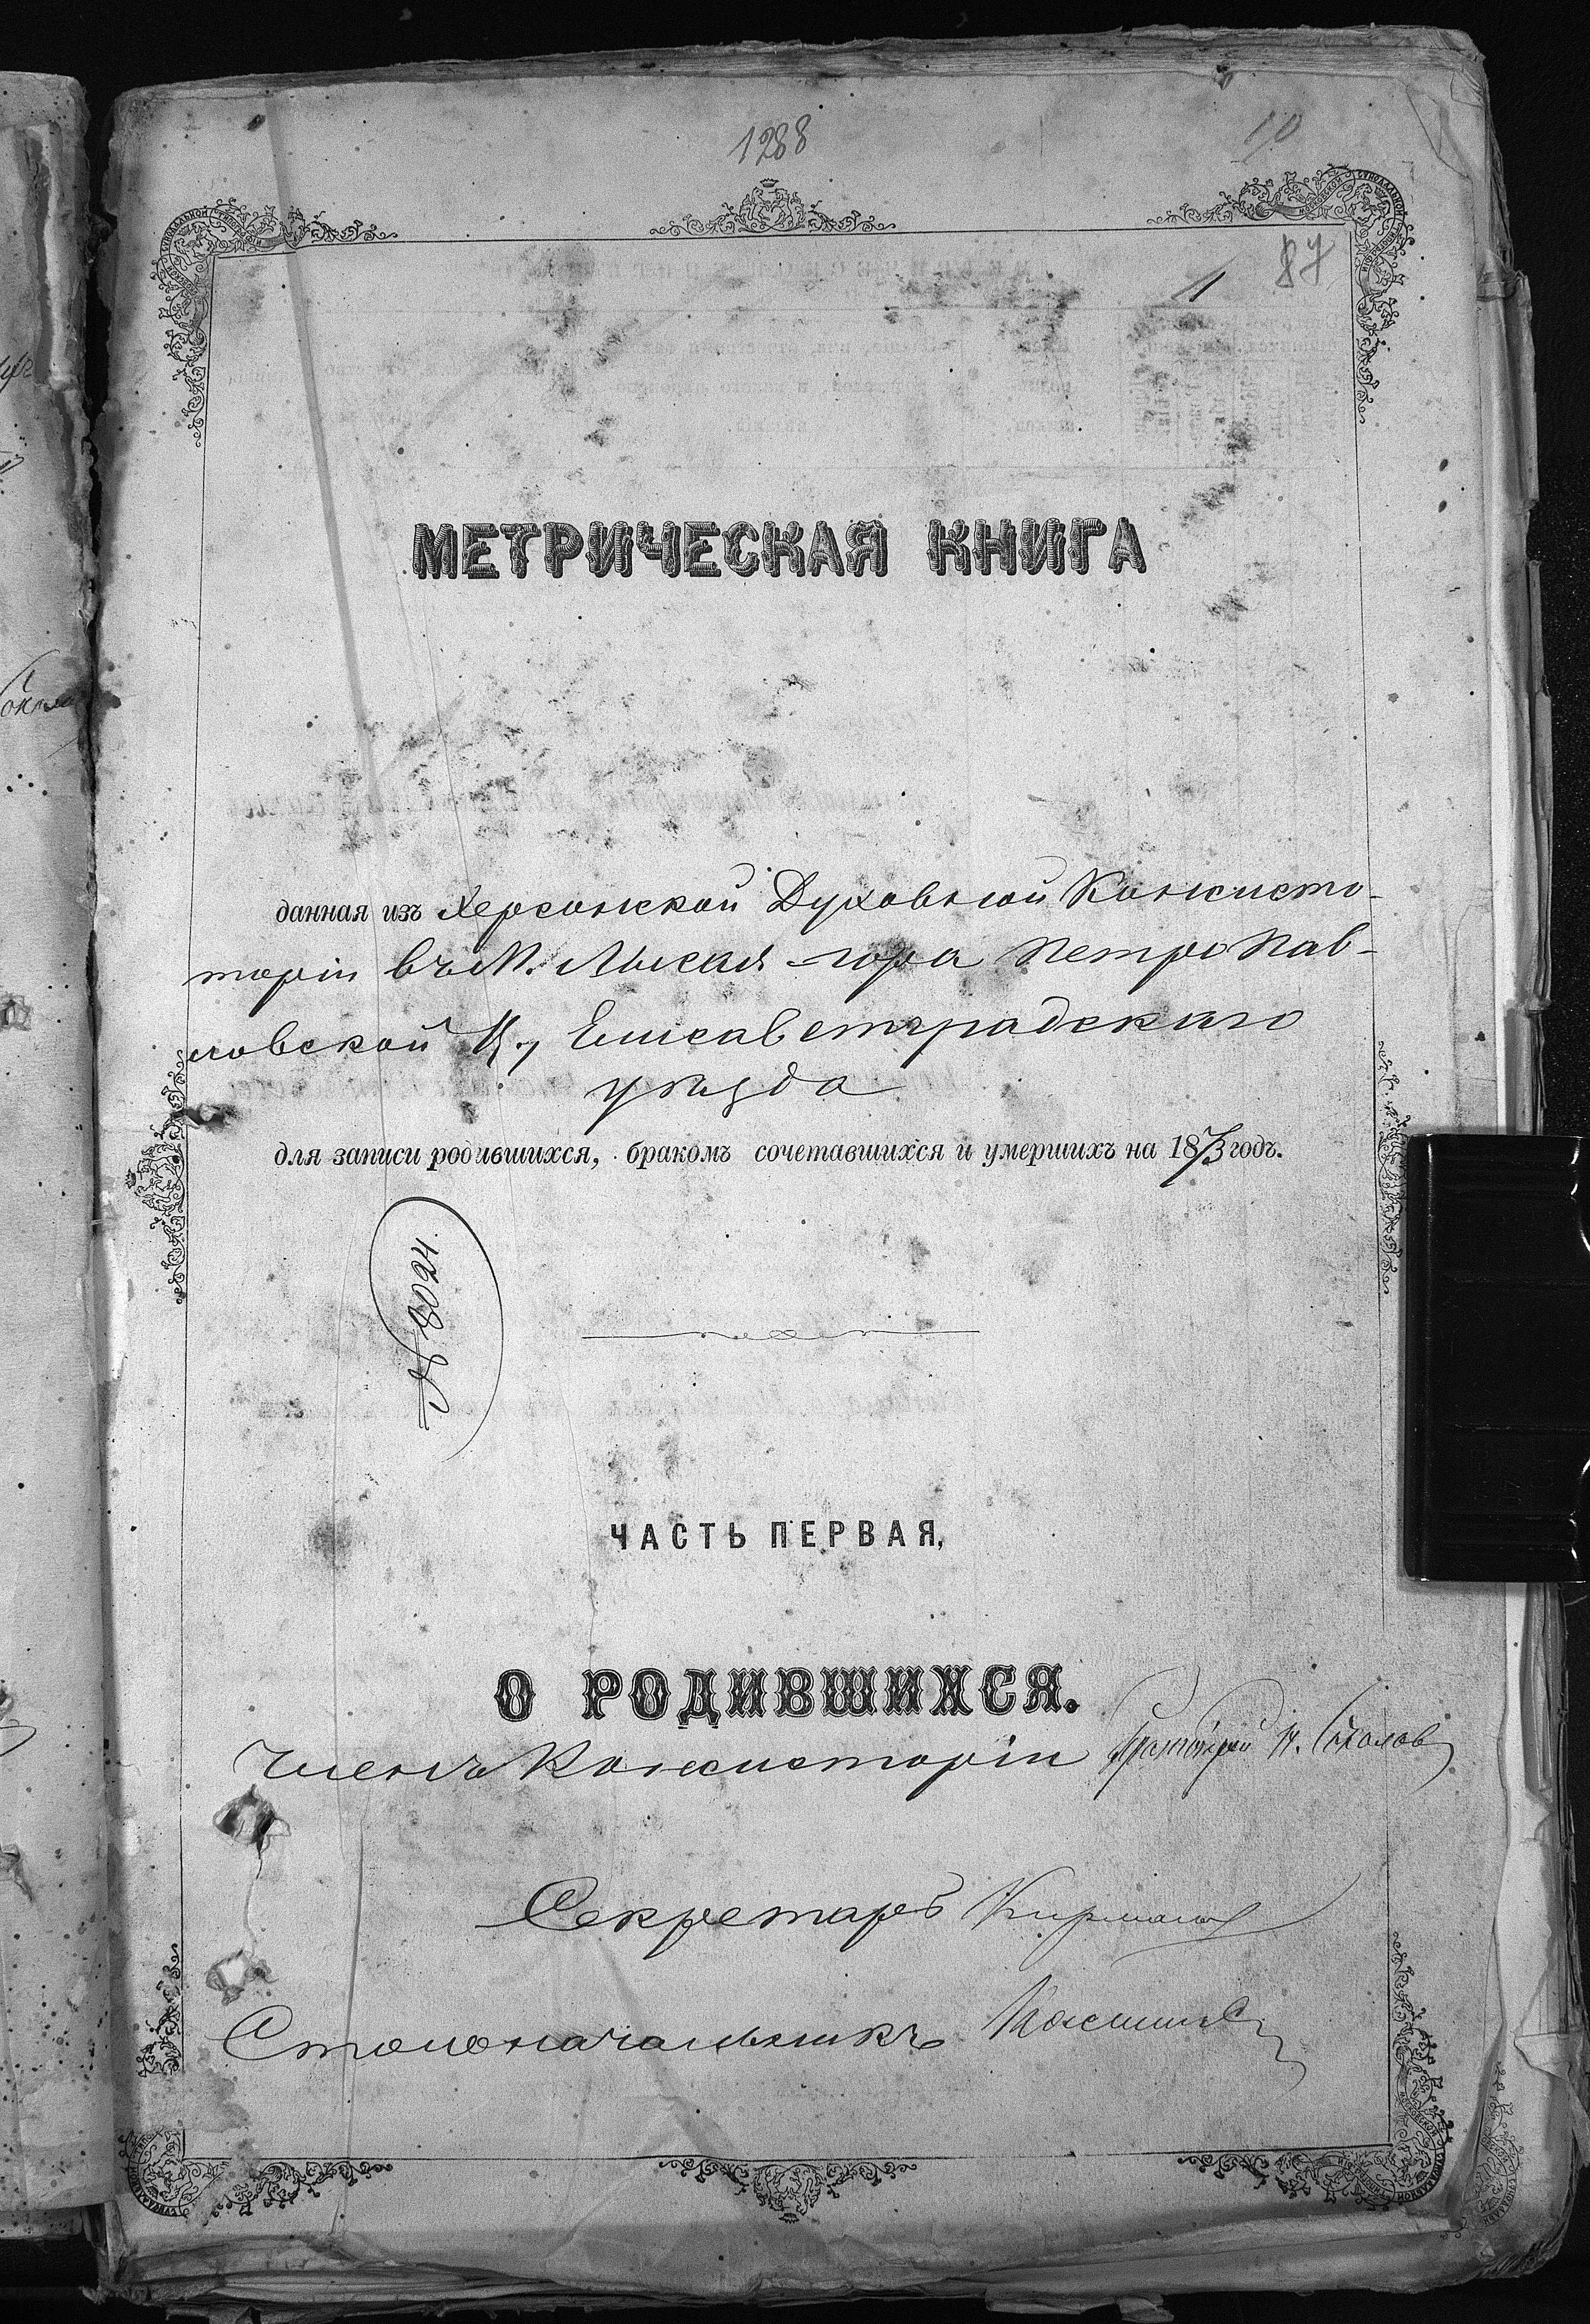 1288
10
1 87
МЕТРИЧЕСКАЯ КНИГА
данная изъ Херсонской Духовной Консисто-
торіи въ М. Лысая-гора Петро Пав-
ловской Ц., Елисаветградскаго
уѣзда
для записи родившихся, бракомъ сочетавшихся и умершихъ на 1873 годъ.
№ 8024.
ЧАСТЬ ПЕРВАЯ,
О РОДИВШИХСЯ.
Членъ Консисторіи Протоіерей Н. Соколов
Секретарь
Столоначальникъ